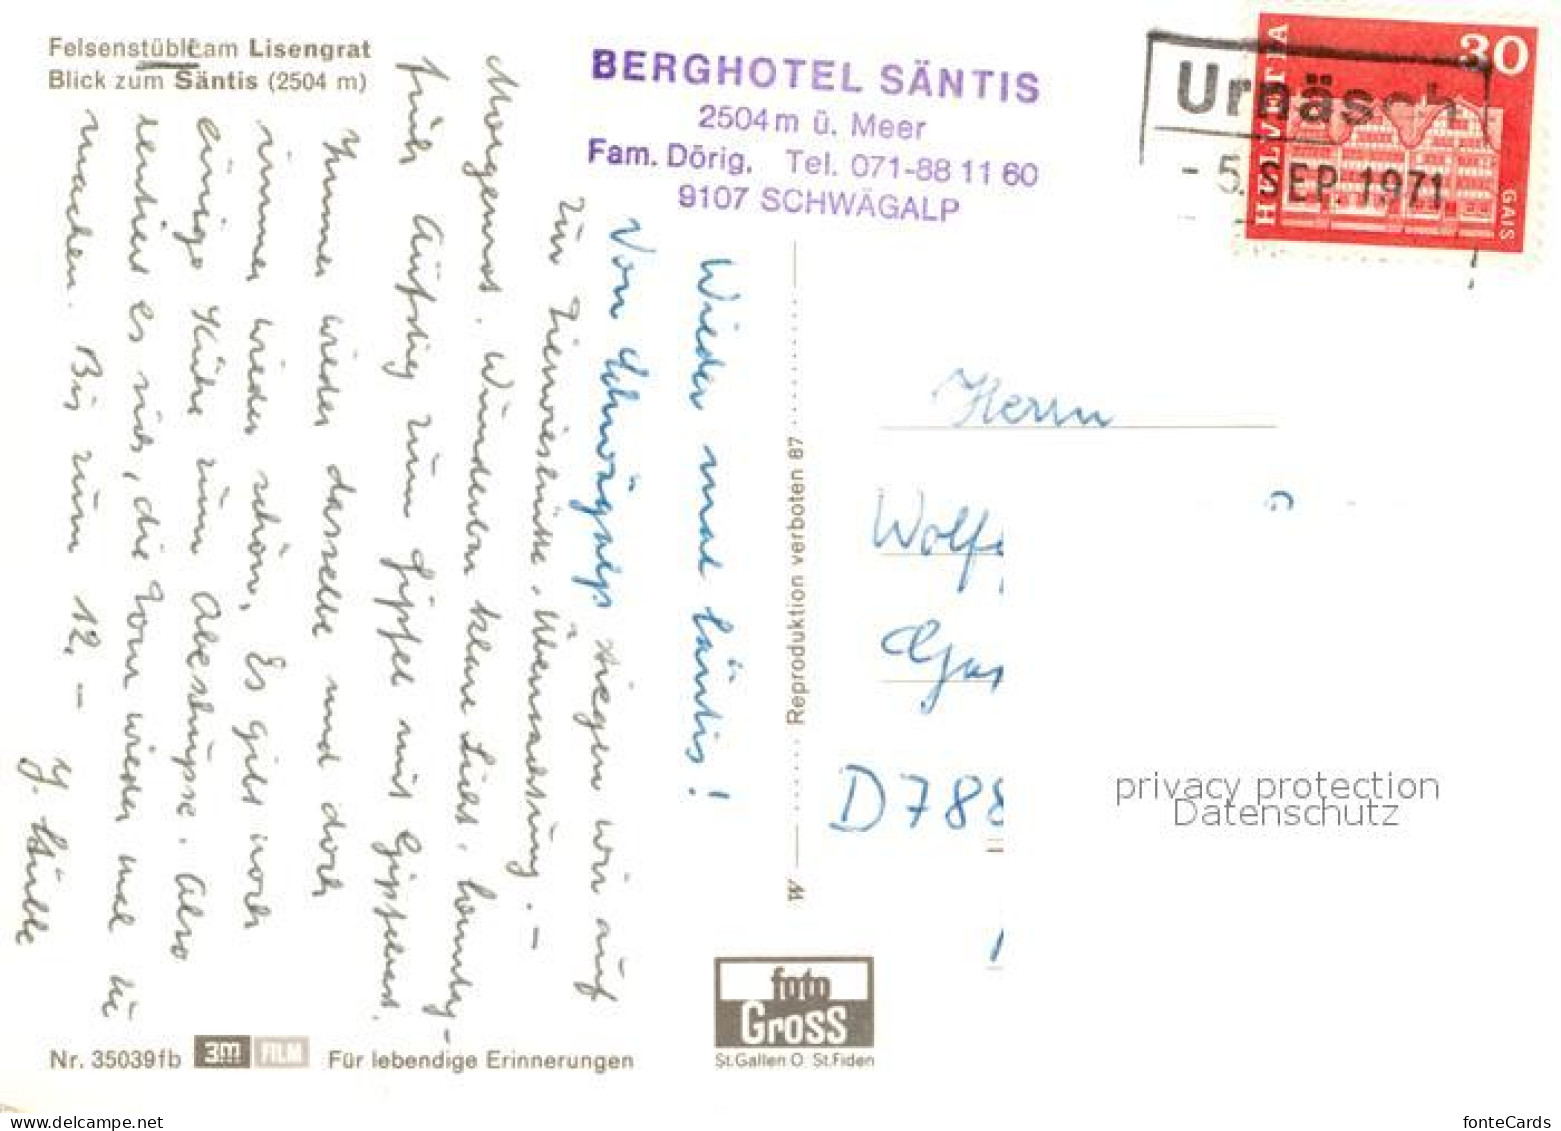 Felsenstüble am Lisengrat
Blick zum Säntis (2504 m)
BERGHOTEL SÄNTIS
2504m ü. Meer
Fam. Dörig, Tel. 071-88 11 60
9107 SCHWÄGALP
HELVETIA
30
GAIS
Urnäsch
- 5. SEP. 1971
Wieder mal Säntis!
Von Schwägalp stiegen wir auf
zur Tierwieshütte. Übernachtung. -
Morgenrot. Wunderbar klare Sicht. Sonntag-
früh Aufstieg zum Gipfel mit Gipfelrast.
Immer wieder dasselbe und doch
immer wieder schön. Es gibt noch
einige Kühe zum Abeschupse. Also
rentiert es sich, die Tour wieder mal zu
machen. Bis zum 12. -
Reproduktion verboten 87
Herrn
D788
privacy protection
Datenschutz
foto
Gross
St.Gallen O St.Fiden
Nr. 35039fb 3M FILM Für lebendige Erinnerungen
www.delcampe.net
fonteCards